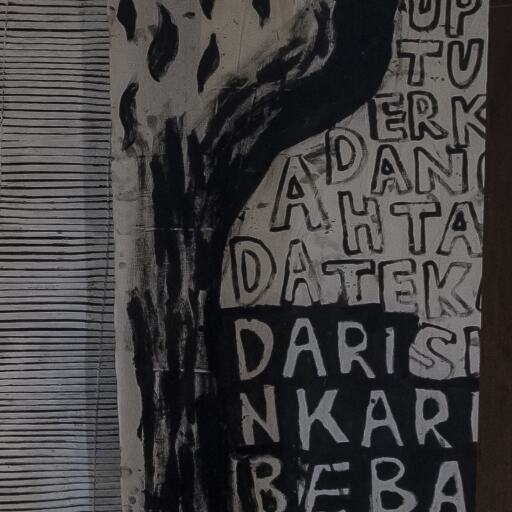 UP
TU
ERK
DANG
A HTA
DATEKA
DARISI
NKARI
BEBA